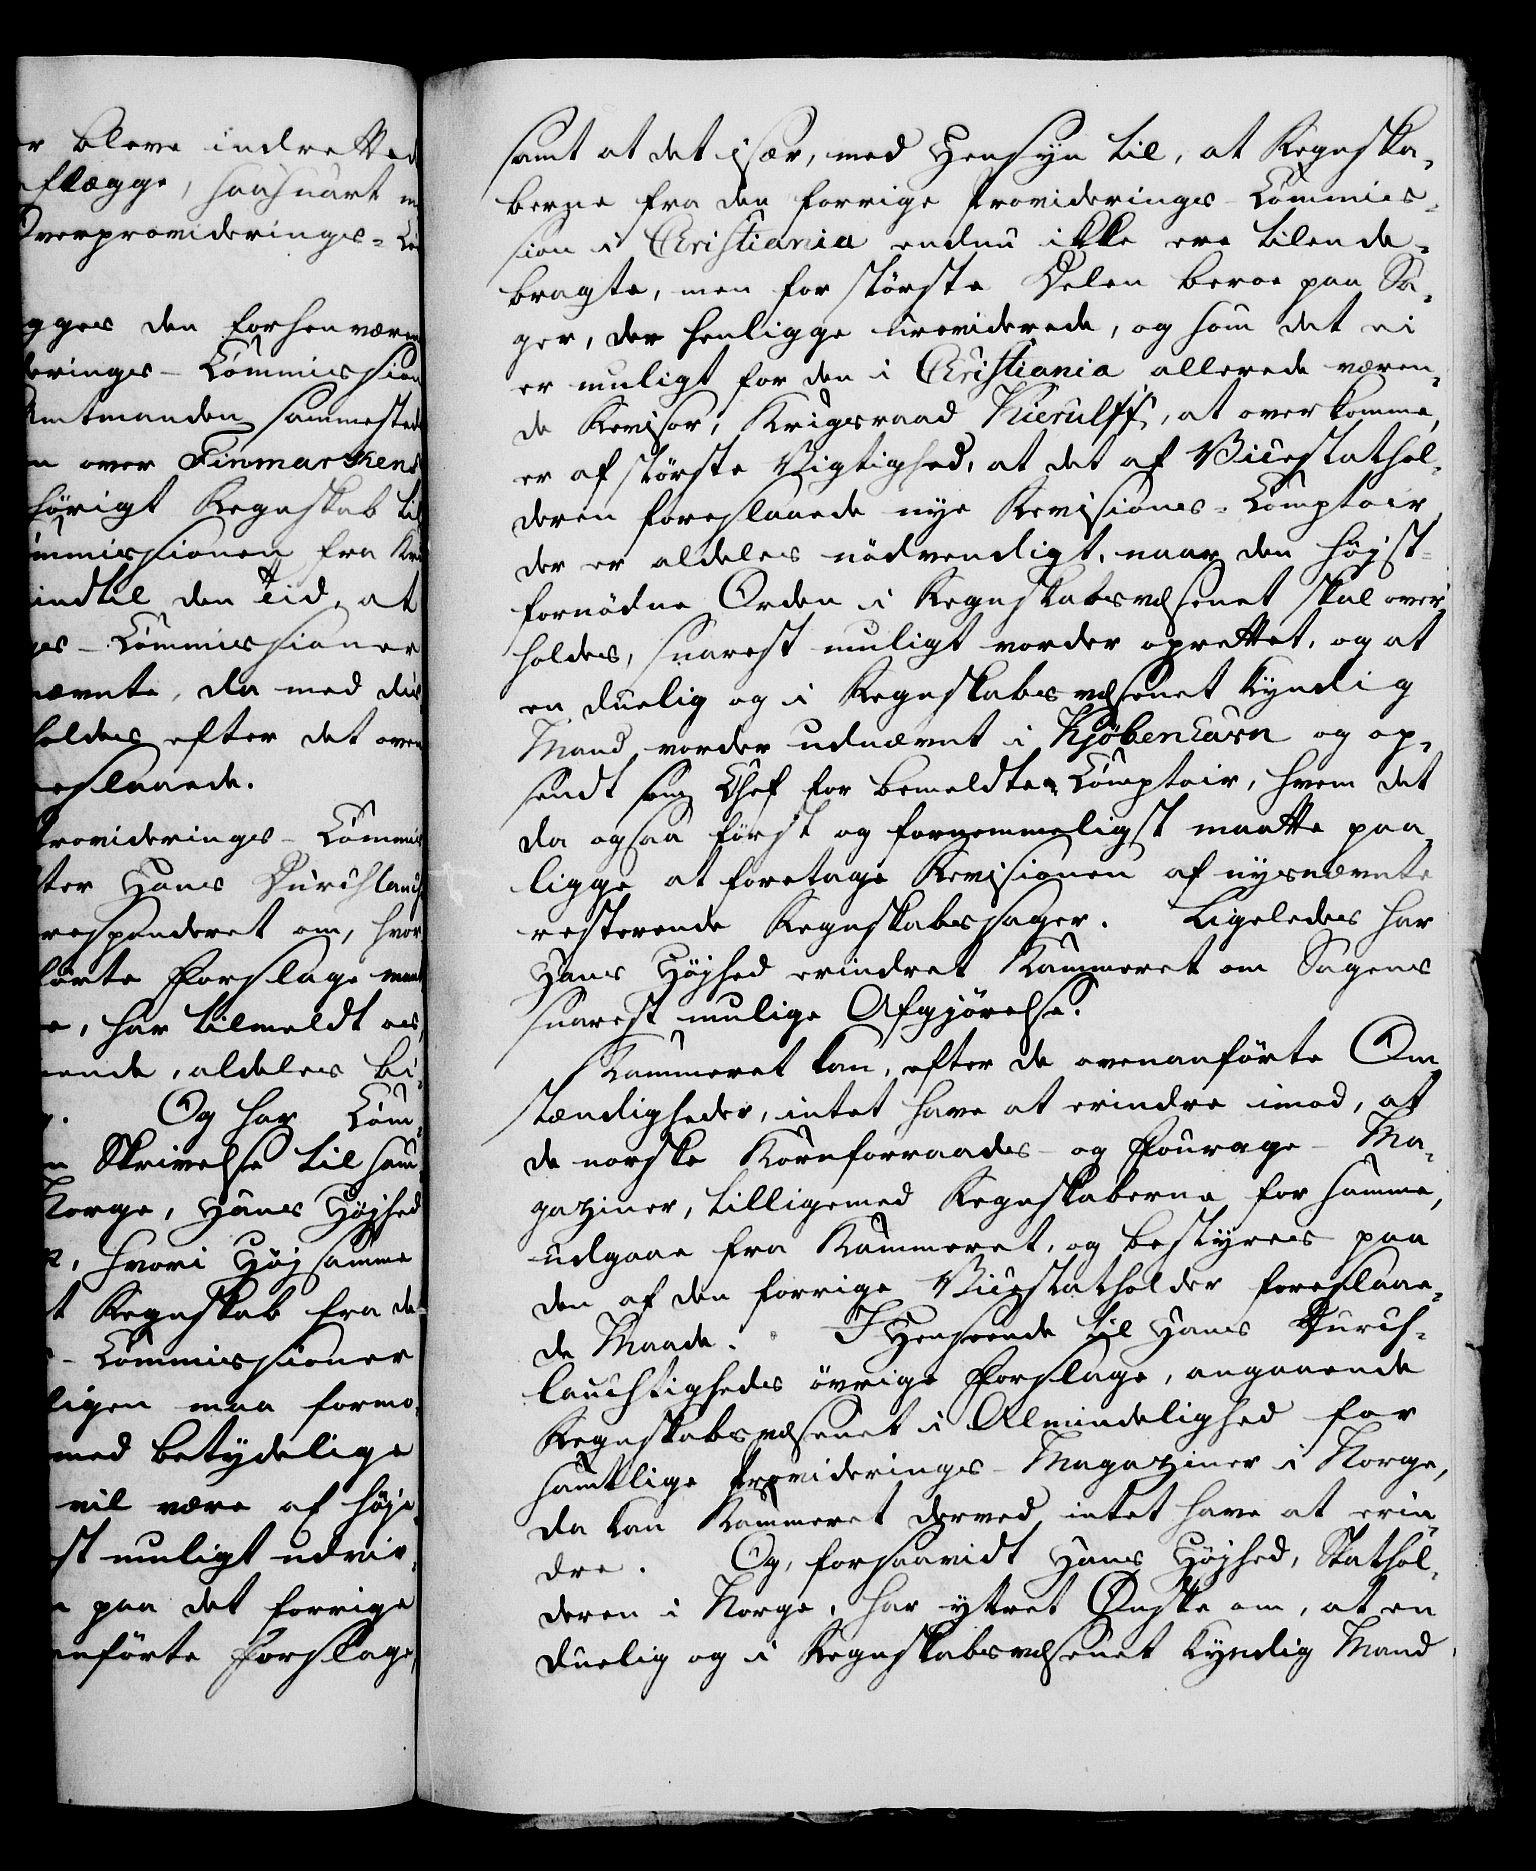 r bleve indretted
flægge, saasnart
Overprovideringes-
gges den forhenværen
deringes-Commission
Amtmanden sammesteds
n over Finmarkens
hörigt Regnskab til
ommissionen fra
indtil den Tid, at
ges-Commissioner
nævnte, da med
holdes efter det oven
eslaaede.
Provideringes-Commis
ter Hans Durchlauch
respunderet om, hvor
förte Forslage
e, har tilmeldt os,
eende, aldeles bi-
Og har Com-
n Skrivelse til sam
Norge, Hans Højhed
hvori Højsamme
t Regnskab fra de
-Commissioner
ligen maa formo-
med betydelige
vil være af höje
st muligt udvir-
paa det forrige
nförte Forslage,
samt at det især, med Hensyn til, at Regnska-
berne fra den forrige Provideringes-Commis-
sion i Christiania endnu ikke ere tilende-
bragte, men for störste Delen beroe paa Sa-
ger, der henligge ureviderede, og som det ei
er muligt for den i Christiania allerede væren-
de Revisor, Krigsraad Kierulff, at overkomme,
er af störste Vigtighed, at det af Vicestathol-
deren foreslaaede nye Revisions-Comptoir
der er aldeles nödvendigt, naar den höjst-
fornödne Orden i Regnskabsvæsenet skal over-
holdes, snarest muligt vorder oprettet, og at
en duelig og i Regnskabsvæsenet kyndig
Mand vorder udnævnt i Kjöbenhavn og op-
sendt som Chef for bemeldte Comptoir, hvem det
da ogsaa först og fornemmeligst maatte paa-
ligge at foretage Revisionen af nysnævnte
resterende Regnskabssager. Ligeledes har
Hans Höjhed erindret Kammeret om Sagens
snarest mulige Afgjörelse.
Kammeret kan, efter de ovenanförte Om-
stændigheder, intet have at erindre imod, at
de norske Kornforraads- og Fourage-Ma-
gaziner, tilligemed Regnskaberne for samme,
udgaae fra Kammeret, og bestyres paa
den af den forrige Vicestatholder foreslaae-
de Maade. I Henseende til Hans Durch-
lauchtigheds övrige Forslage, angaaende
Regnskabsvæsenet i Almindelighed for
samtlige Provideringes-Magaziner i Norge,
da kan Kammeret derved intet have at erin-
dre. Og, forsaavidt Hans Höjhed, Stathol-
deren i Norge, har yttret Önske om, at en
duelig og i Regnskabsvæsenet kyndig Mand